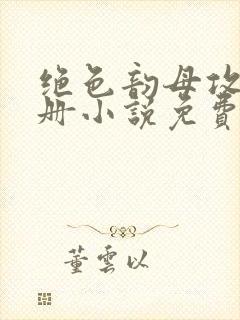 绝色韵母攻
册小说免費
董雲以